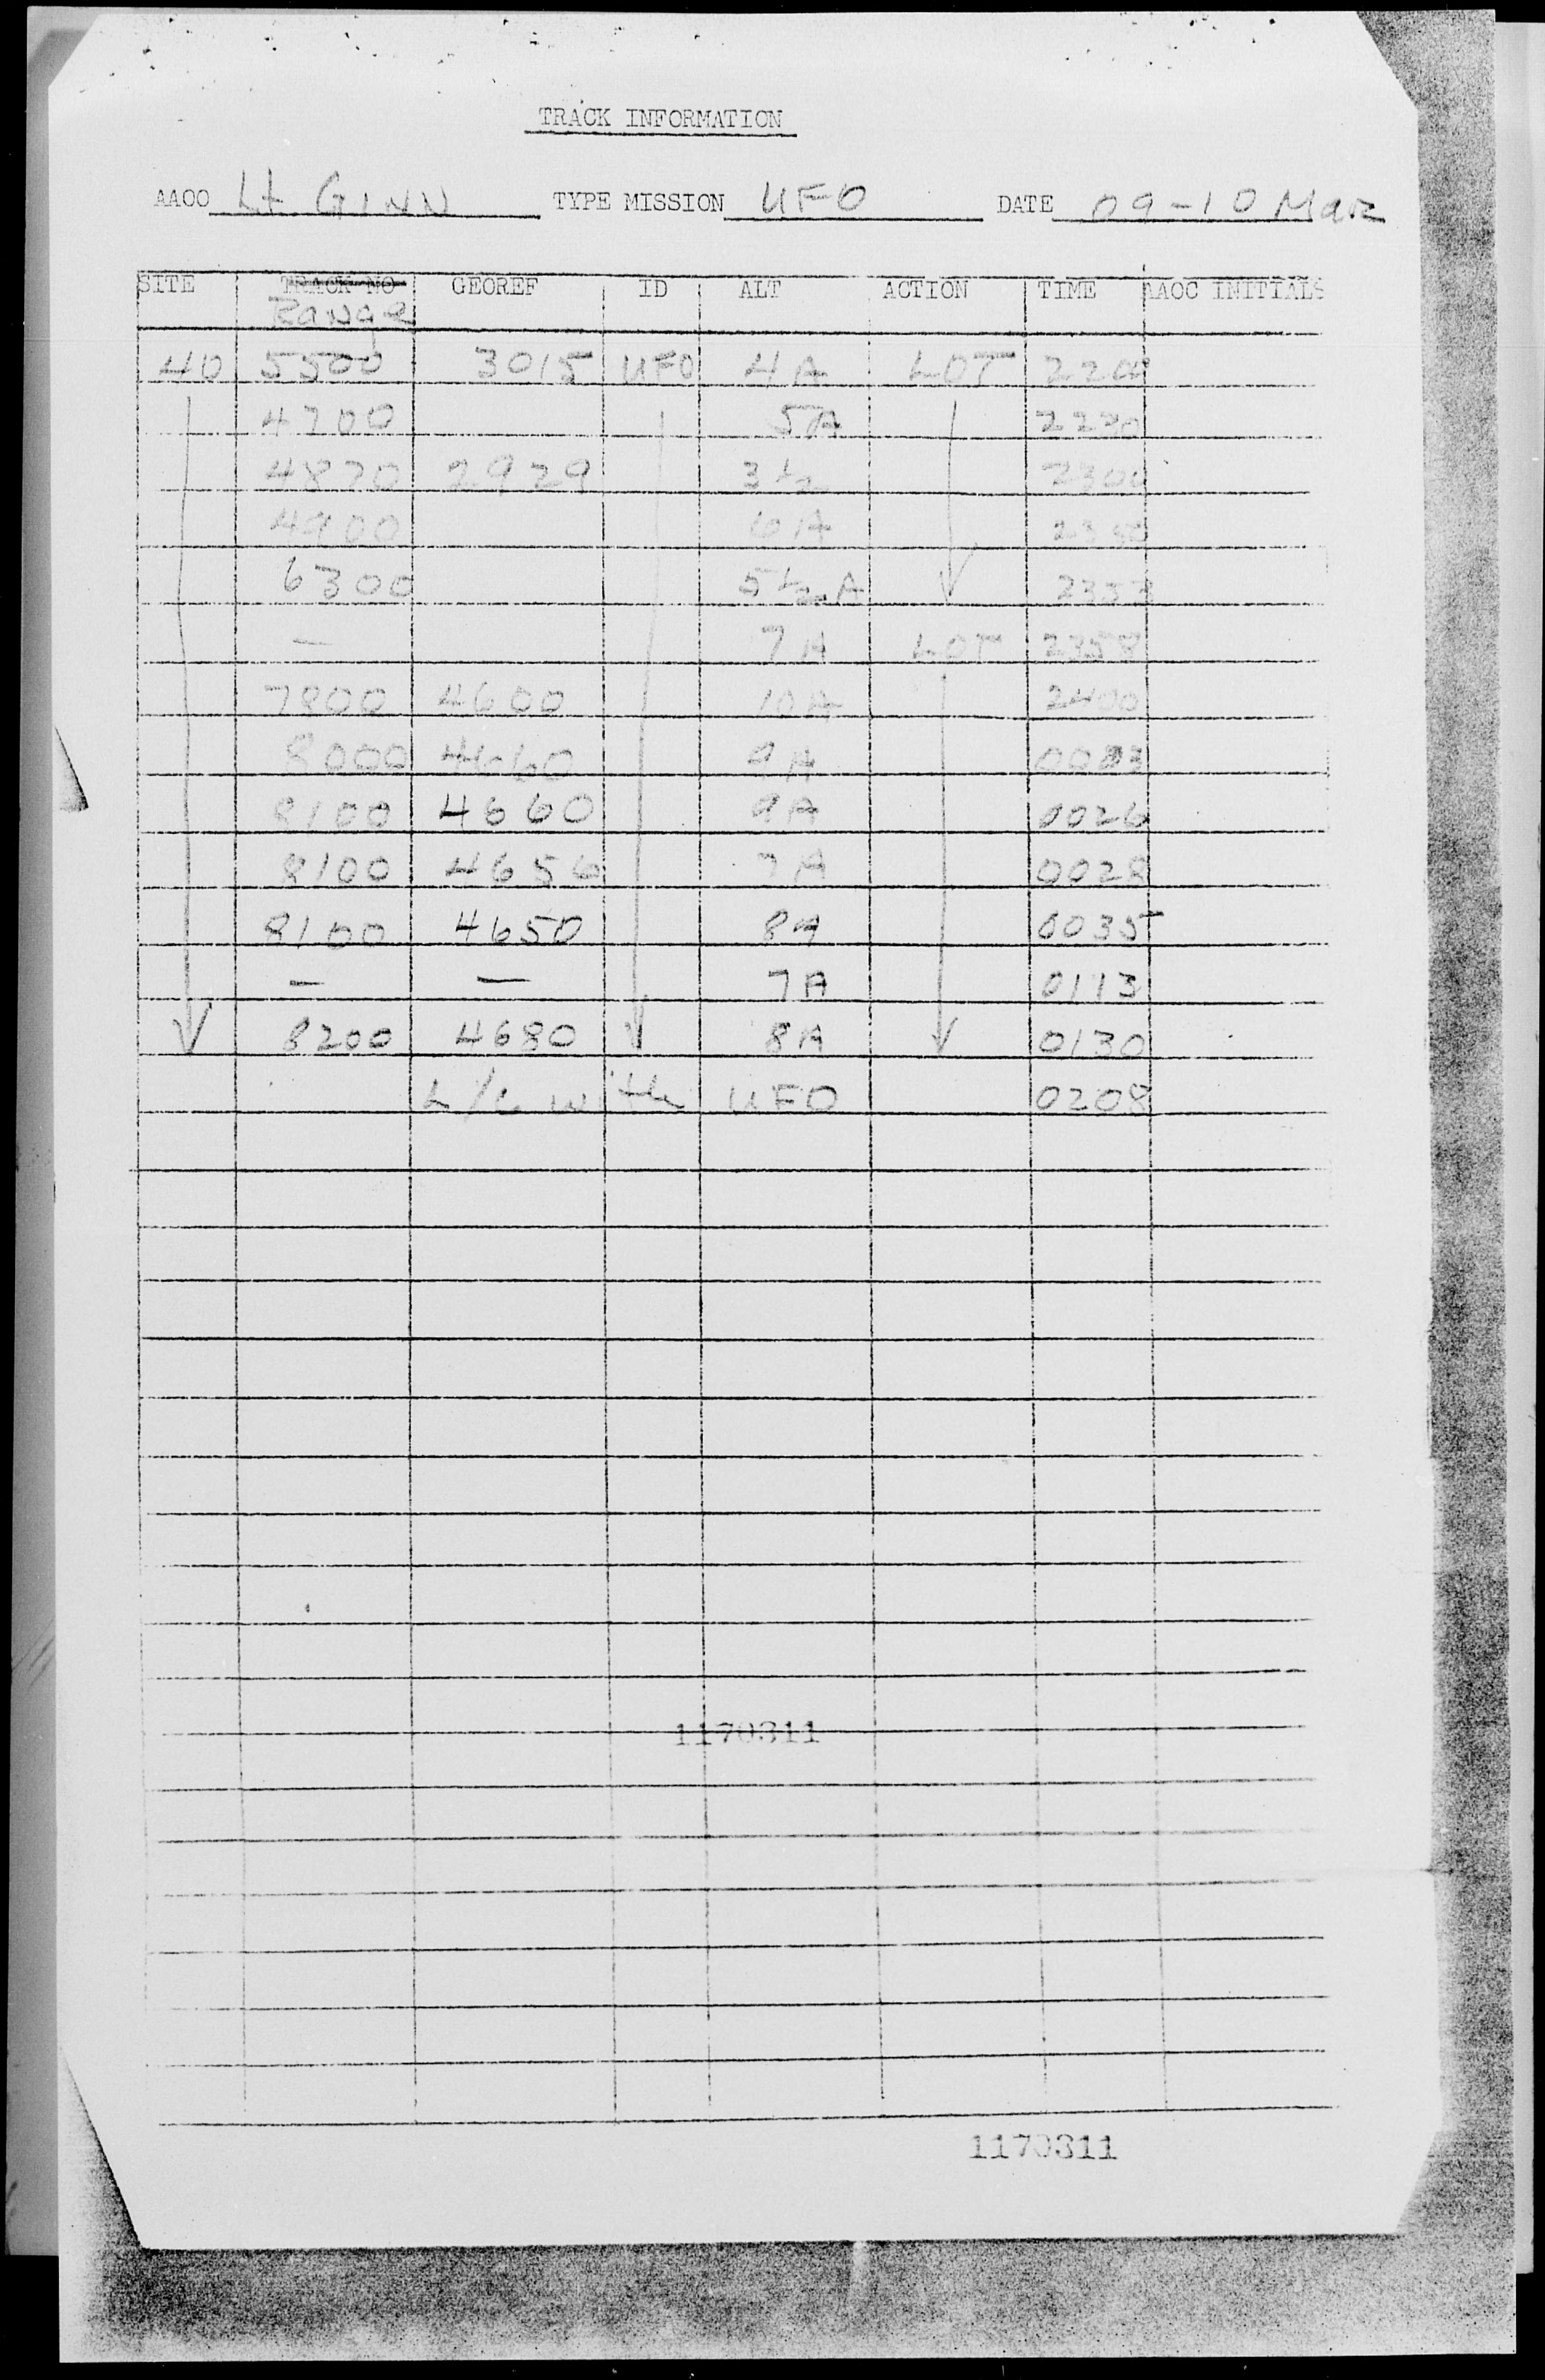 TRACK INFORMATION
AAOO Lt GINN TYPE MISSION UFO DATE 09-10 Mar
SITE TRACK NO GEOREF ID ALT ACTION TIME AAOC INITIALS
Range
40 5500 3015 UFO 4A LOT
4700 5A
4870 2929 3½ 2300
4900 6A
6300 5½ A
— 7A LOT 2358
7800 4600 10A 2400
8000 4660 9A
8100 4660 9A 0026
8100 4656 7A 0028
8100 4650 8A 0035
— — 7A 0113
8200 4680 8A 0130
L/C with UFO 0208
1170311
1170311